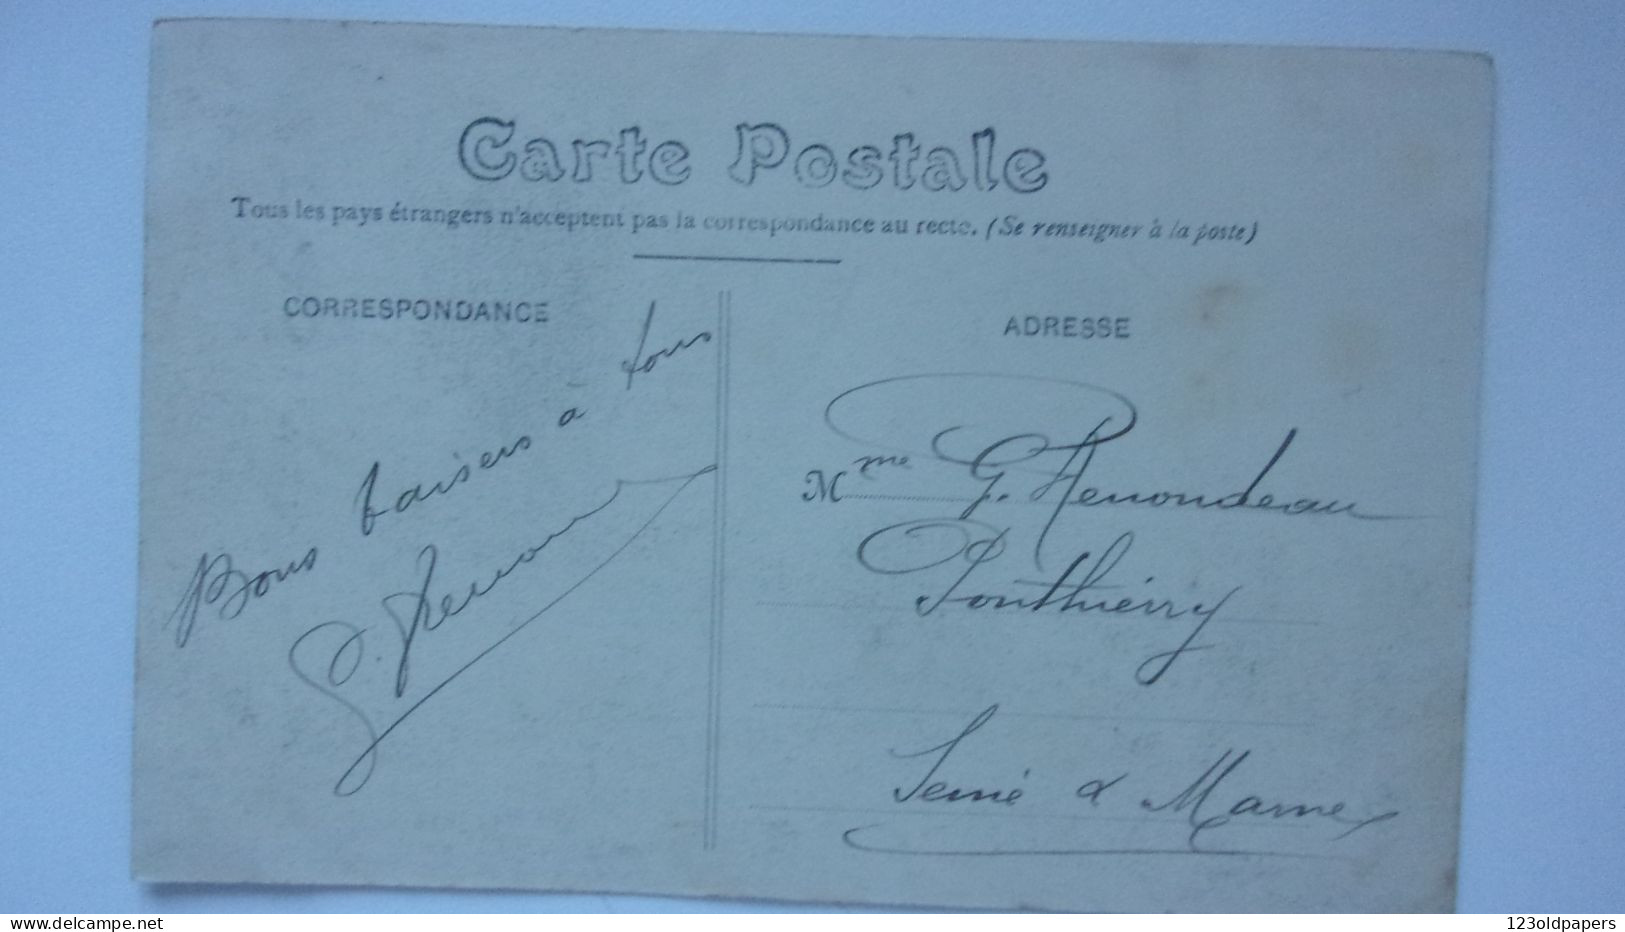 Carte Postale
Tous les pays étrangers n'acceptent pas la correspondance au recto. (Se renseigner à la poste)
CORRESPONDANCE
Bons baisers à tous
ADRESSE
Mme G. Renondeau
Ponthierry
Seine & Marne
delcampe.net
123oldpapers